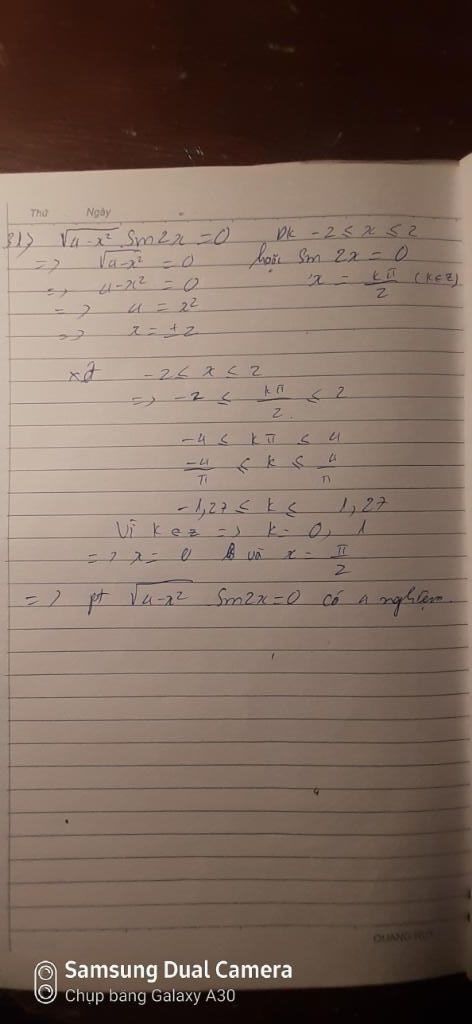 Thứ Ngày
31) √4-x² . Sin2x = 0 ĐK -2 ≤ x ≤ 2
=> √4-x² = 0 hoặc Sin 2x = 0
=> 4-x² = 0 x = kπ/2 (k∈Z)
=> 4 = x²
=> x = ±2
xét -2 ≤ x ≤ 2
=> -2 ≤ kπ/2 ≤ 2
-4 ≤ kπ ≤ 4
-4/π ≤ k ≤ 4/π
-1,27 ≤ k ≤ 1,27
Vì k ∈ Z => k = 0, 1
=> x = 0 và x = π/2
=> pt √4-x² Sin2x=0 có 4 nghiệm
QUANG HUY
Samsung Dual Camera
Chụp bằng Galaxy A30